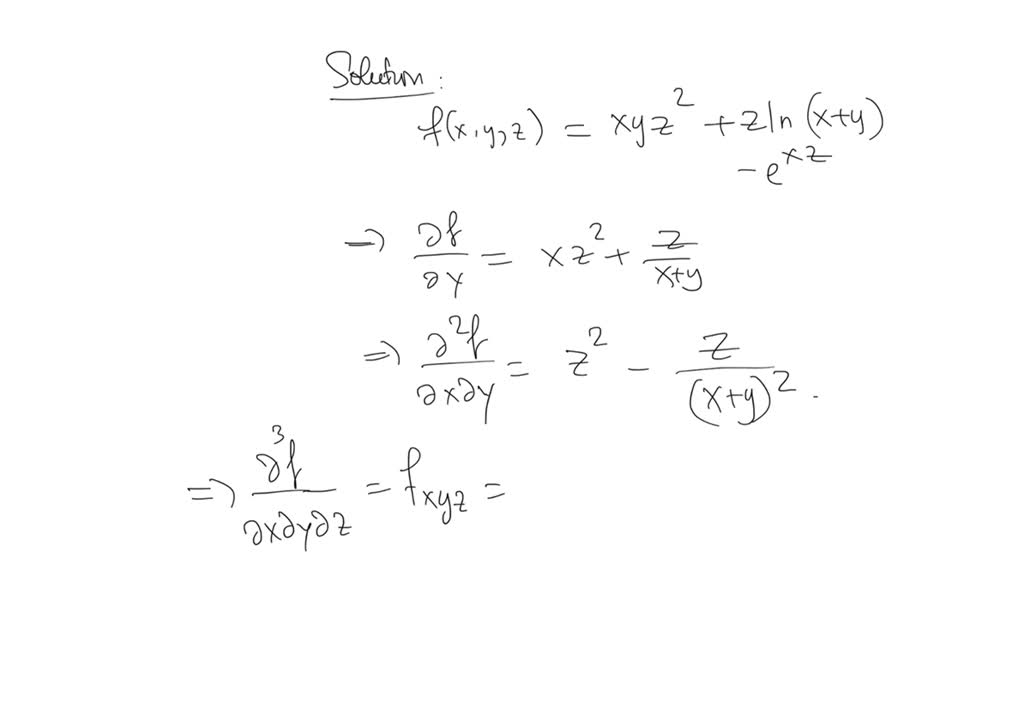 Solution:
f(x,y,z) = xyz² + z ln (x+y)
- e^{xz}
→ ∂f/∂y = xz² + z/(x+y)
⇒ ∂²f/∂x∂y = z² - z/(x+y)².
⇒ ∂³f/∂x∂y∂z = f_{xyz} =